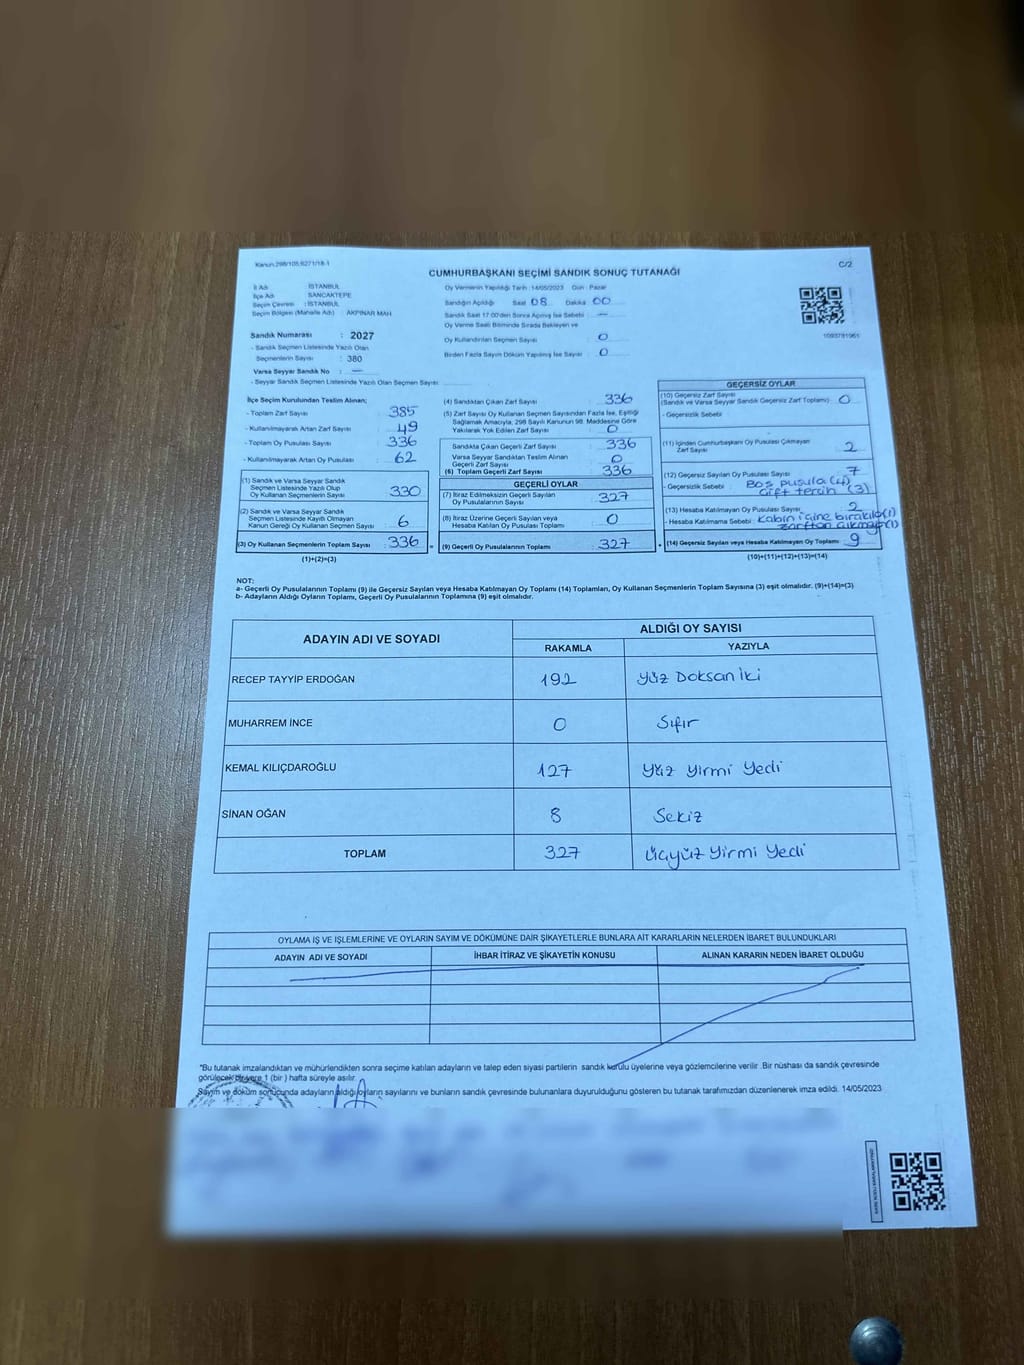 Kanun:298/105,6271/18-1
C/2
CUMHURBAŞKANI SEÇİMİ SANDIK SONUÇ TUTANAĞI
İl Adı : İSTANBUL
İlçe Adı : SANCAKTEPE
Seçim Çevresi : İSTANBUL
Seçim Bölgesi (Mahalle Adı) : AKPINAR MAH
Sandık Numarası : 2027
- Sandık Seçmen Listesinde Yazılı Olan
Seçmenlerin Sayısı : 380
Varsa Seyyar Sandık No : —
- Seyyar Sandık Seçmen Listesinde Yazılı Olan Seçmen Sayısı
Oy Vermenin Yapıldığı Tarih : 14/05/2023 Gün : Pazar
Sandığın Açıldığı Saat 08 Dakika 00
Sandık Saat 17:00'den Sonra Açılmış İse Sebebi : —
Oy Verme Saati Bitiminde Sırada Bekleyen ve
Oy Kullandırılan Seçmen Sayısı : 0
Birden Fazla Sayım Döküm Yapılmış İse Sayısı : 0
1093791961
İlçe Seçim Kurulundan Teslim Alınan;
- Toplam Zarf Sayısı : 385
- Kullanılmayarak Artan Zarf Sayısı : 49
- Toplam Oy Pusulası Sayısı : 336
- Kullanılmayarak Artan Oy Pusulası : 62
(1) Sandık ve Varsa Seyyar Sandık
Seçmen Listesinde Yazılı Olup
Oy Kullanan Seçmenlerin Sayısı : 330
(2) Sandık ve Varsa Seyyar Sandık
Seçmen Listesinde Kayıtlı Olmayan
Kanun Gereği Oy Kullanan Seçmen Sayısı : 6
(3) Oy Kullanan Seçmenlerin Toplam Sayısı : 336
(1)+(2)=(3)
(4) Sandıktan Çıkan Zarf Sayısı : 336
(5) Zarf Sayısı Oy Kullanan Seçmen Sayısından Fazla İse, Eşitliği
Sağlamak Amacıyla, 298 Sayılı Kanunun 98. Maddesine Göre
Yakılarak Yok Edilen Zarf Sayısı : 0
Sandıkta Çıkan Geçerli Zarf Sayısı : 336
Varsa Seyyar Sandıktan Teslim Alınan
Geçerli Zarf Sayısı : 0
(6) Toplam Geçerli Zarf Sayısı : 336
GEÇERLİ OYLAR
(7) İtiraz Edilmeksizin Geçerli Sayılan
Oy Pusulalarının Sayısı : 327
(8) İtiraz Üzerine Geçerli Sayılan veya
Hesaba Katılan Oy Pusulası Toplamı : 0
(9) Geçerli Oy Pusulalarının Toplamı : 327
GEÇERSİZ OYLAR
(10) Geçersiz Zarf Sayısı
(Sandık ve Varsa Seyyar Sandık Geçersiz Zarf Toplamı) : 0
- Geçersizlik Sebebi :
(11) İçinden Cumhurbaşkanı Oy Pusulası Çıkmayan
Zarf Sayısı : 2
(12) Geçersiz Sayılan Oy Pusulası Sayısı : 7
- Geçersizlik Sebebi : Boş pusula (4)
Çift tercih (3)
(13) Hesaba Katılmayan Oy Pusulası Sayısı : 2
- Hesaba Katılmama Sebebi : Kabin içine bırakıldı (1)
zarftan çıkmayan (1)
(14) Geçersiz Sayılan veya Hesaba Katılmayan Oy Toplamı : 9
(10)+(11)+(12)+(13)=(14)
NOT:
a- Geçerli Oy Pusulalarının Toplamı (9) ile Geçersiz Sayılan veya Hesaba Katılmayan Oy Toplamı (14) Toplamları, Oy Kullanan Seçmenlerin Toplam Sayısına (3) eşit olmalıdır. (9)+(14)=(3)
b- Adayların Aldığı Oyların Toplamı, Geçerli Oy Pusulalarının Toplamına (9) eşit olmalıdır.
ADAYIN ADI VE SOYADI
ALDIĞI OY SAYISI
RAKAMLA YAZIYLA
RECEP TAYYİP ERDOĞAN 192 Yüz Doksan İki
MUHARREM İNCE 0 Sıfır
KEMAL KILIÇDAROĞLU 127 Yüz Yirmi Yedi
SİNAN OĞAN 8 Sekiz
TOPLAM 327 Üçyüz Yirmi Yedi
OYLAMA İŞ VE İŞLEMLERİNE VE OYLARIN SAYIM VE DÖKÜMÜNE DAİR ŞİKAYETLERLE BUNLARA AİT KARARLARIN NELERDEN İBARET BULUNDUKLARI
ADAYIN ADI VE SOYADI İHBAR İTİRAZ VE ŞİKAYETİN KONUSU ALINAN KARARIN NEDEN İBARET OLDUĞU
*Bu tutanak imzalandıktan ve mühürlendikten sonra seçime katılan adayların ve talep eden siyasi partilerin sandık kurulu üyelerine veya gözlemcilerine verilir .Bir nüshası da sandık çevresinde
görülecek bir yere 1 (bir ) hafta süreyle asılır.
Sayım ve döküm sonucunda adayların aldığı oyların sayılarını ve bunların sandık çevresinde bulunanlara duyurulduğunu gösteren bu tutanak tarafımızdan düzenlenerek imza edildi. 14/05/2023